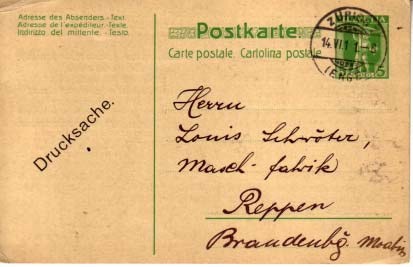 Adresse des Absenders - Text.
Adresse de l'expéditeur - Texte.
Indirizzo del mittente. - Testo.
Postkarte.
Carte postale. Cartolina postale.
ZÜRICH
14.VI.1
(ENGE)
Drucksache.
Herrn
Louis Schröter,
Masch-fabrik
Reppen
Brandenbg